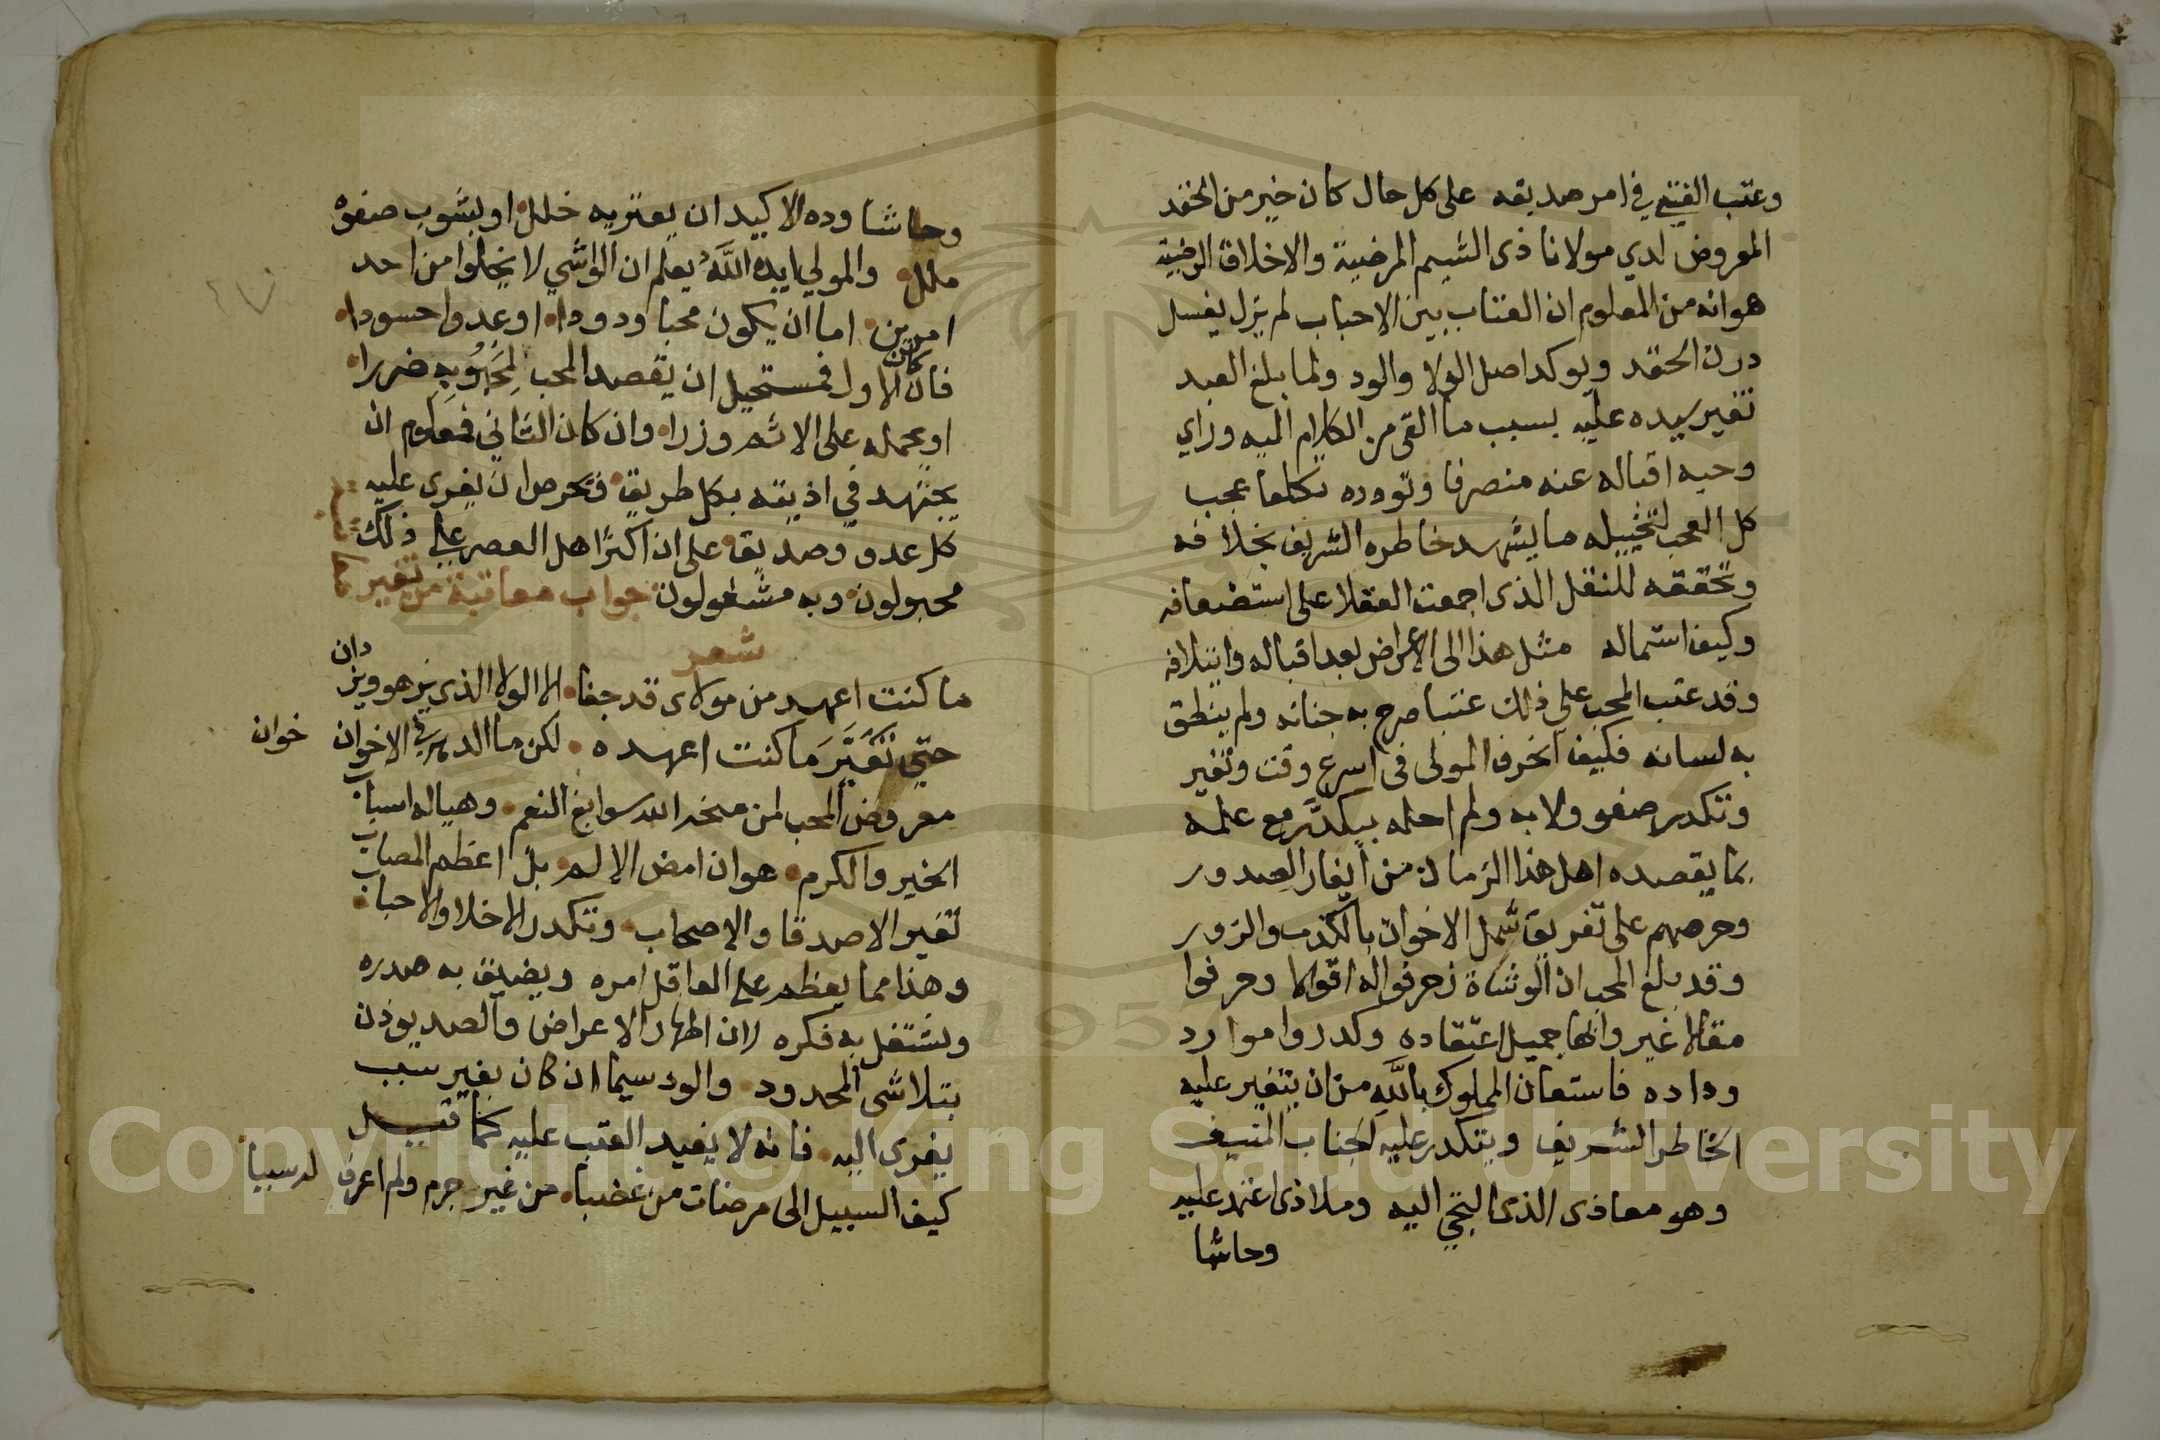 وعتب الفتى في امر صديقه على كل حال كان خير من الحقد
المعروض لدي مولانا ذى الشيم المرضية والاخلاق الرضية
هو انه من المعلوم ان العتاب بين الاحباب لم يزل يغسل
درن الحقد ويوكد اصل الولا والود ولما بلغ العبد
تغير سيده عليه بسبب ما القى من الكلام اليه وراي
وجه اقباله عنه منصرفا وتودده تكلفا عجب
كل العجب لتخييله ما يشهد خاطره الشريف بخلافه
وتحققه للنقل الذى اجمعت العقلا على استضعافه
وكيف استماله مثل هذا الى الاعراض بعد اقباله وايتلافه
وقد عتب المحب على ذلك عتبا صرح به جنانه ولم ينطق
به لسانه فكيف انحرف المولى فى اسرع وقت وتغير
وتكدر صفو ولايه ولم اخله يتكدر مع علمه
بما يقصده اهل هذا الزمان من ايغار الصدور
وحرصهم على تفريق شمل الاخوان بالكذب والزور
وقد بلغ المحب ان الوشاة زخرفوا له اقوالا وحرفوا
مقالا غير والها جميل اعتقاده وكدروا موارد
وداده فاستعان المملوك بالله من ان يتغير عليه
الخاطر الشريف ويتكدر عليه الجناب المنيف
وهو معاذى الذى التجى اليه وملاذى اعتمد عليه
وحاشا
وحاشا وده الاكيد ان يعتريه خلل او يشوب صفوه
ملل والمولي ايده الله يعلم ان الواشي لا يخلوا من احد
امرين اما ان يكون محبا ودودا او عدوا حسودا
فان كان الاول فمستحيل ان يقصد المحب لمحبوبه ضررا
او يحمله على الاثم وزرا وان كان الثاني فمعلوم ان
يجتهد في اذيته بكل طريق فيحرص ان يغرى عليه
كل عدو وصديق على ان اكثر اهل العصر على ذلك
مجبولون وبه مشغولون جواب معاتبة من تغير
شعر
ما كنت اعهد من مولاى قد جفا الا الولا الذى يزهو ويزدان
حتي تغير ما كنت اعهده لكن ما الدهر في الاخوان خوان
معروض المحب لمن منحه الله سوابغ النعم وهيا له اسباب
الخير والكرم هو ان امض الالم بل اعظم المصاب
تغير الاصدقا والاصحاب وتكدر الاخلا والاحباب
وهذا مما يعظم على العاقل امره ويضيق به صدره
ويشتغل به فكره لان اظهار الاعراض والصد يوذن
بتلاشى المحدود والود سيما ان كان بغير سبب
يغرى اليه فانه لا يفيد العتب عليه كما قيل
كيف السبيل الى مرضات من غضبا من غير جرم ولم اعرف له سببا